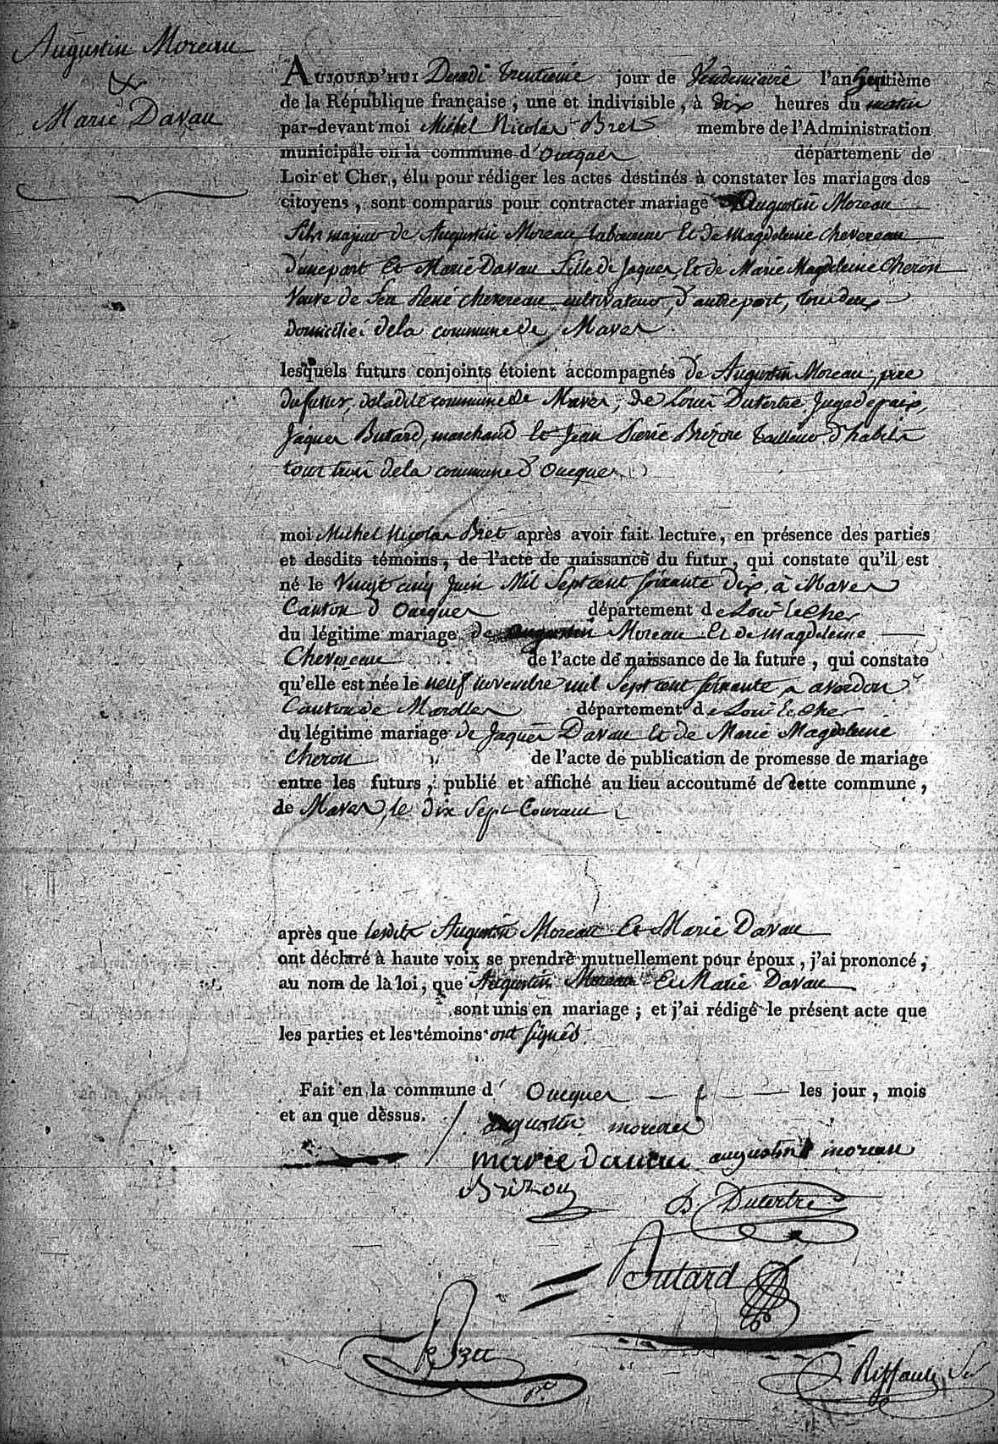 Augustin Moreau
&
Marie Davau
AUJOURD'HUI Decadi trentieme jour de Vendemiaire l'an Septième
de la République française, une et indivisible, à dix heures du matin
par-devant moi Michel Nicolas Bret membre de l'Administration
municipale en la commune d'Oucques département de
Loir et Cher, élu pour rédiger les actes destinés à constater les mariages des
citoyens, sont comparus pour contracter mariage Augustin Moreau
fils majeur de Augustin Moreau laboureur Et de Magdeleine Chevereau
d'une part Et Marie Davau fille de Jaques, Et de Marie Magdeleine Cheron
Veuve de feu René Chevereau cultivateur, d'autre part, tou deux
domicilié dela commune de Maves
lesquels futurs conjoints étoient accompagnés de Augustin Moreau, pere
du futur, de ladite commune de Maves, de Louis Dutertre Juge de paix,
Jaques Butard, marchand Et Jean Brizou tailleur d'habits
tous trois dela commune d'Oucques
moi Michel Nicolas Bret après avoir fait lecture, en présence des parties
et desdits témoins, de l'acte de naissance du futur, qui constate qu'il est
né le Vingt cinq Juin Mil Sept cent soixante dix, à Maves
Canton d'Oucques département de Loir Et Cher
du légitime mariage de Augustin Moreau Et de Magdeleine
Chevereau de l'acte de naissance de la future, qui constate
qu'elle est née le neuf novembre mil Sept cent soixante a averdon
Canton de Marolles département de Loir Et Cher
du légitime mariage de Jaques Davau Et de Marie Magdeleine
Cheron de l'acte de publication de promesse de mariage
entre les futurs, publié et affiché au lieu accoutumé de cette commune,
de Maves, le dix Sept Courant
après que lesdits Augustin Moreau Et Marie Davau
ont déclaré à haute voix se prendre mutuellement pour époux, j'ai prononcé,
au nom de la loi, que Augustin Moreau Et Marie Davau
sont unis en mariage; et j'ai rédigé le présent acte que
les parties et les témoins ont signés
Fait en la commune d' Oucques les jour, mois
et an que dessus.
augustin moreau
marie davau augustin moreau
Brizou
Dutertre
Butard
Bret
Riffault